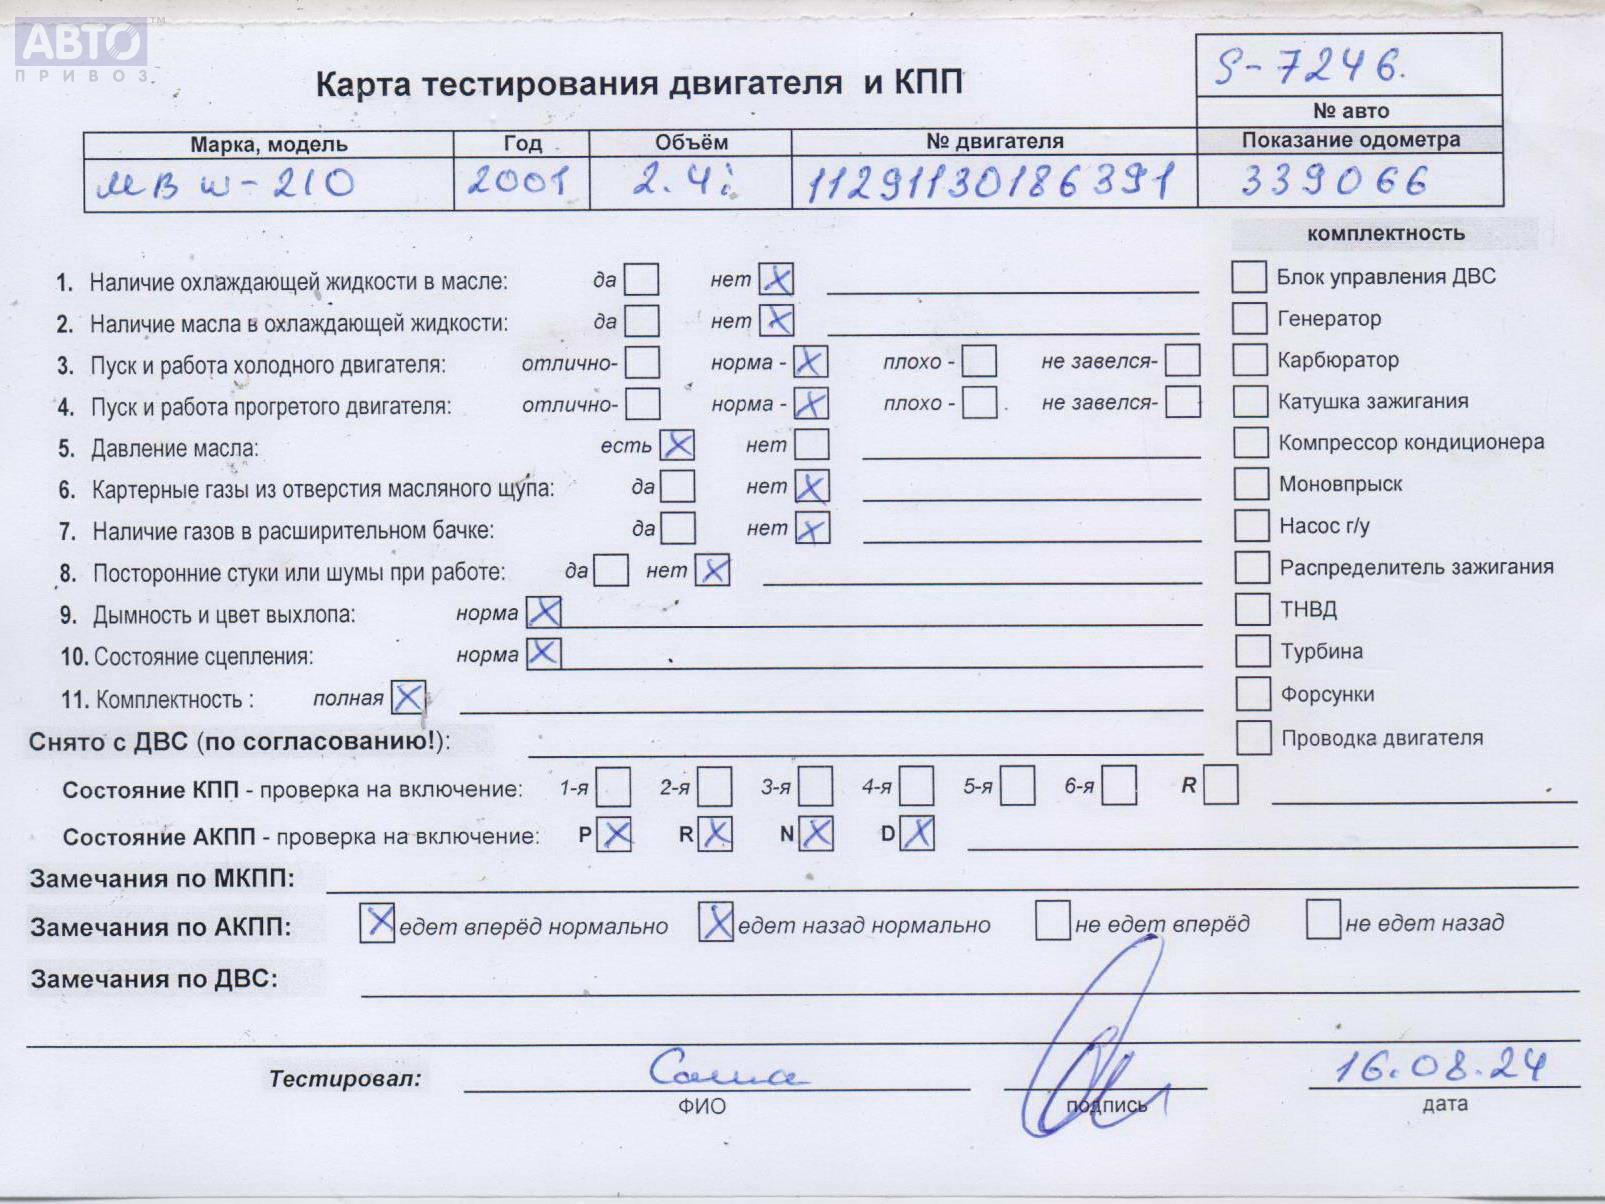 АВТО™
ПРИВОЗ
S-7246.
Карта тестирования двигателя и КПП
№ авто
Марка, модель Год Объём № двигателя Показание одометра
МВ w-210 2001 2.4i 11291130186391 339066
комплектность
1. Наличие охлаждающей жидкости в масле: да нет X
Блок управления ДВС
2. Наличие масла в охлаждающей жидкости: да нет X
Генератор
3. Пуск и работа холодного двигателя: отлично- норма - X плохо - не завелся-
Карбюратор
4. Пуск и работа прогретого двигателя: отлично- норма - X плохо - не завелся-
Катушка зажигания
5. Давление масла: есть X нет
Компрессор кондиционера
6. Картерные газы из отверстия масляного щупа: да нет X
Моновпрыск
7. Наличие газов в расширительном бачке: да нет X
Насос г/у
8. Посторонние стуки или шумы при работе: да нет X
Распределитель зажигания
9. Дымность и цвет выхлопа: норма X
ТНВД
10. Состояние сцепления: норма X
Турбина
11. Комплектность : полная X
Форсунки
Снято с ДВС (по согласованию!):
Проводка двигателя
Состояние КПП - проверка на включение: 1-я 2-я 3-я 4-я 5-я 6-я R
Состояние АКПП - проверка на включение: P X R X N X D X
Замечания по МКПП:
Замечания по АКПП: X едет вперёд нормально X едет назад нормально не едет вперёд не едет назад
Замечания по ДВС:
Тестировал: Саша 16.08.24
ФИО подпись дата